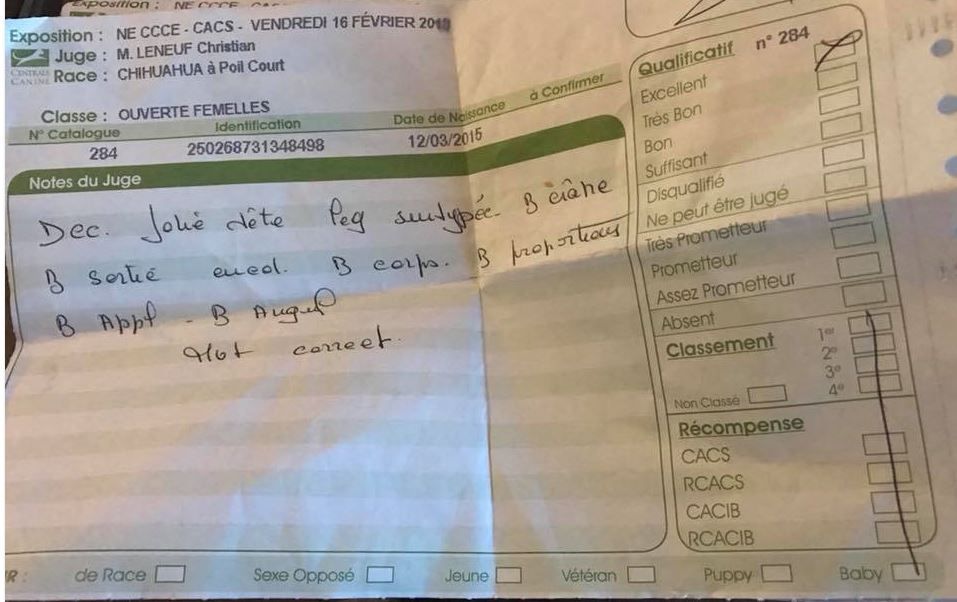 Exposition : NE CCCE - CACS
Exposition : NE CCCE - CACS - VENDREDI 16 FÉVRIER 201
Juge : M. LENEUF Christian
CENTRALE CANINE
Race : CHIHUAHUA à Poil Court
Classe : OUVERTE FEMELLES
à Confirmer
N° Catalogue Identification Date de Naissance
284 250268731348498 12/03/2015
Notes du Juge
Dec. Jolie tête Peg B crâne
B sortie encol. B corps. B proportions
B Appt - B
correct.
Qualificatif n° 284
Excellent
Très Bon
Bon
Suffisant
Disqualifié
Ne peut être jugé
Très Prometteur
Prometteur
Assez Prometteur
Absent
Classement 1er
2e
3e
Non Classé 4e
Récompense
CACS
RCACS
CACIB
RCACIB
R : de Race Sexe Opposé Jeune Vétéran Puppy Baby